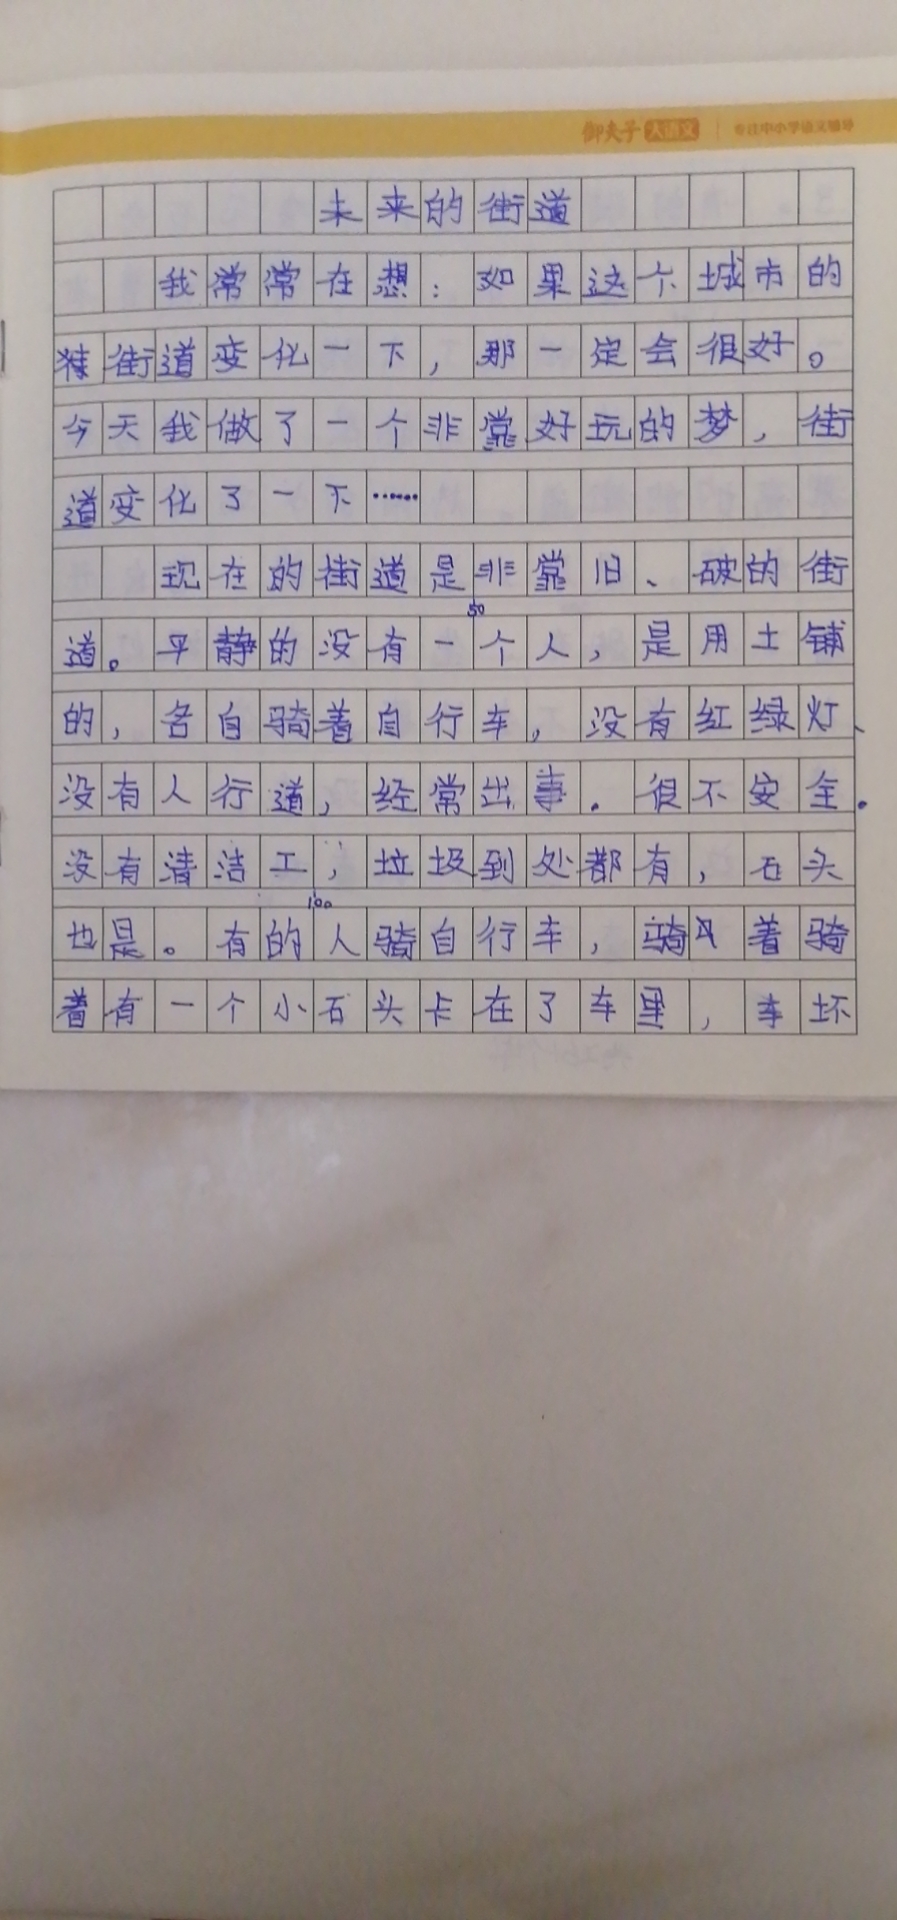 御夫子 大语文 专注中小学语文辅导
未来的街道
我常常在想：如果这个城市的
街道变化一下，那一定会很好。
今天我做了一个非常好玩的梦，街
道变化了一下……
现在的街道是非常旧、破的街
50
道。平静的没有一个人，是用土铺
的，各自骑着自行车，没有红绿灯、
没有人行道，经常出事．很不安全．
没有清洁工，垃圾到处都有，石头
100
也是。有的人骑自行车，骑着骑
着有一个小石头卡在了车里，车坏